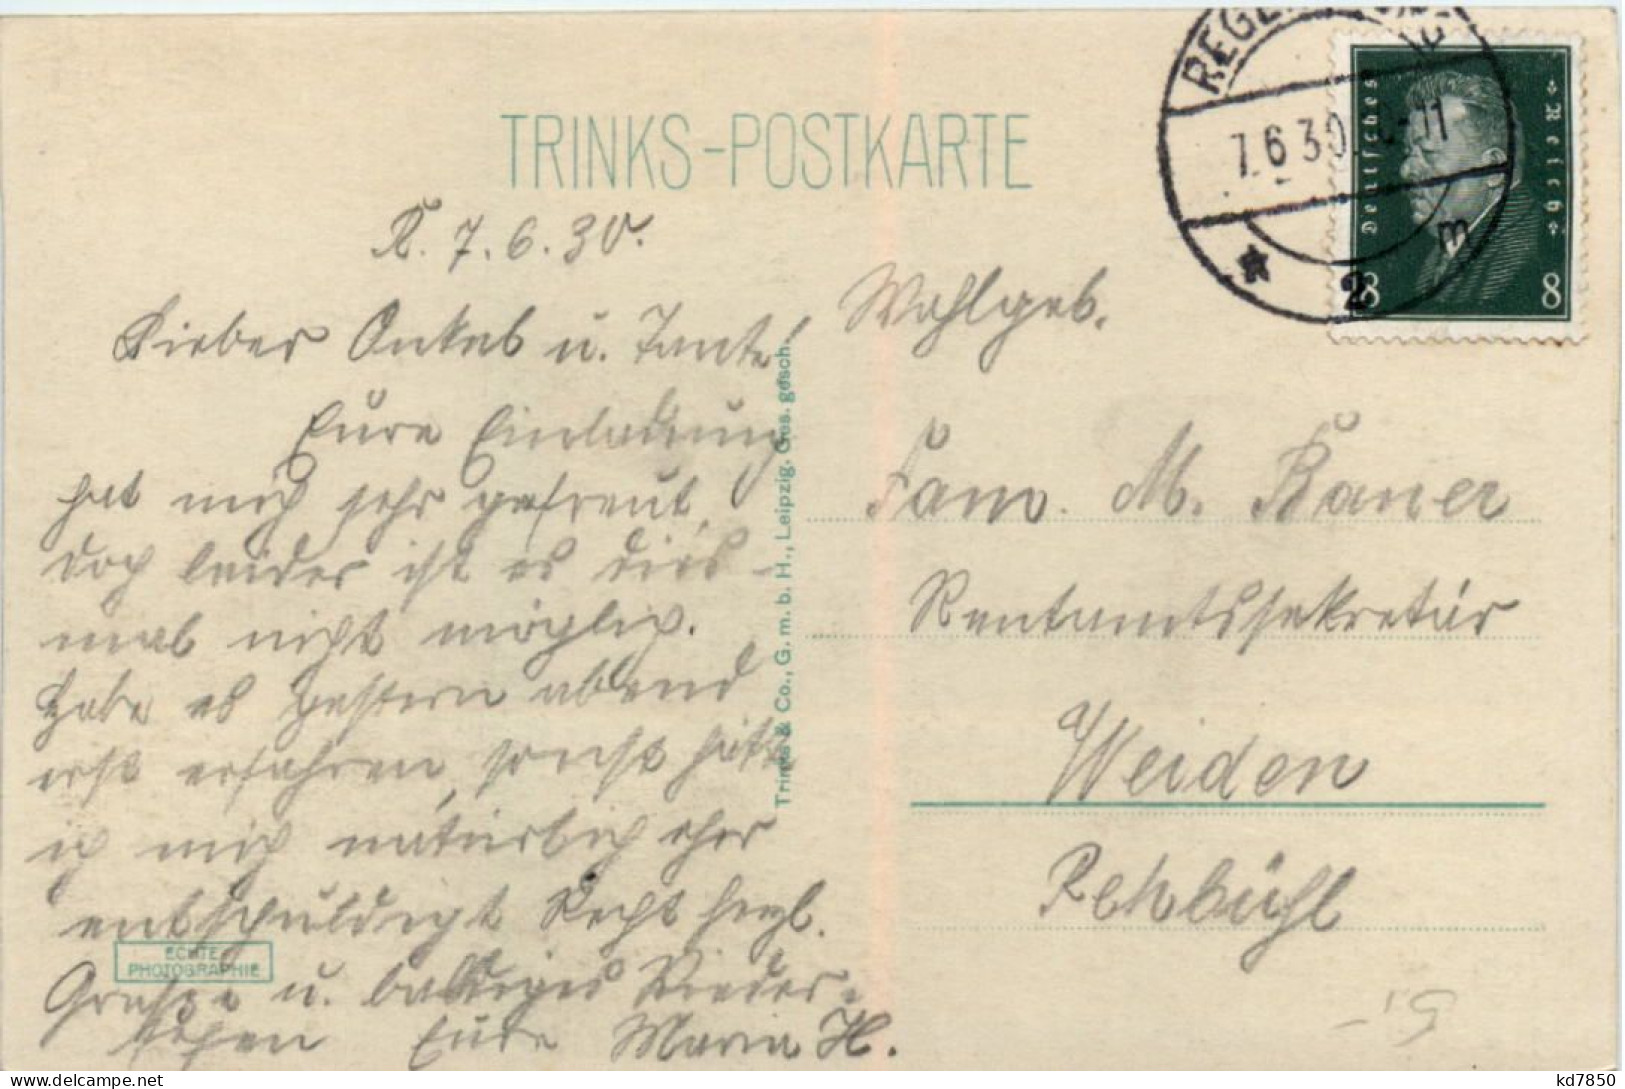 TRINKS-POSTKARTE
R. 7.6.30.
Lieber Onkel u. Tante!
Eure Einladung
hat mich sehr gefreut,
doch leider ist es dies-
mal nicht möglich.
Habe es gestern abend
erst erfahren, sonst hätte
ich mich natürlich eher
entschuldigt Recht herzl.
Grüße u. baldiges Wieder-
sehen Eure Maria H.
ECHTE
PHOTOGRAPHIE
Trinks & Co., G. m. b. H., Leipzig. Ges. gesch.
7.6.30 -11
m
* 2
Deutsches Reich
8 8
Wohlgeb.
Fam. M. Bauer
Rentamtssekretär
Weiden
Rehbühl
5,-
kd7850